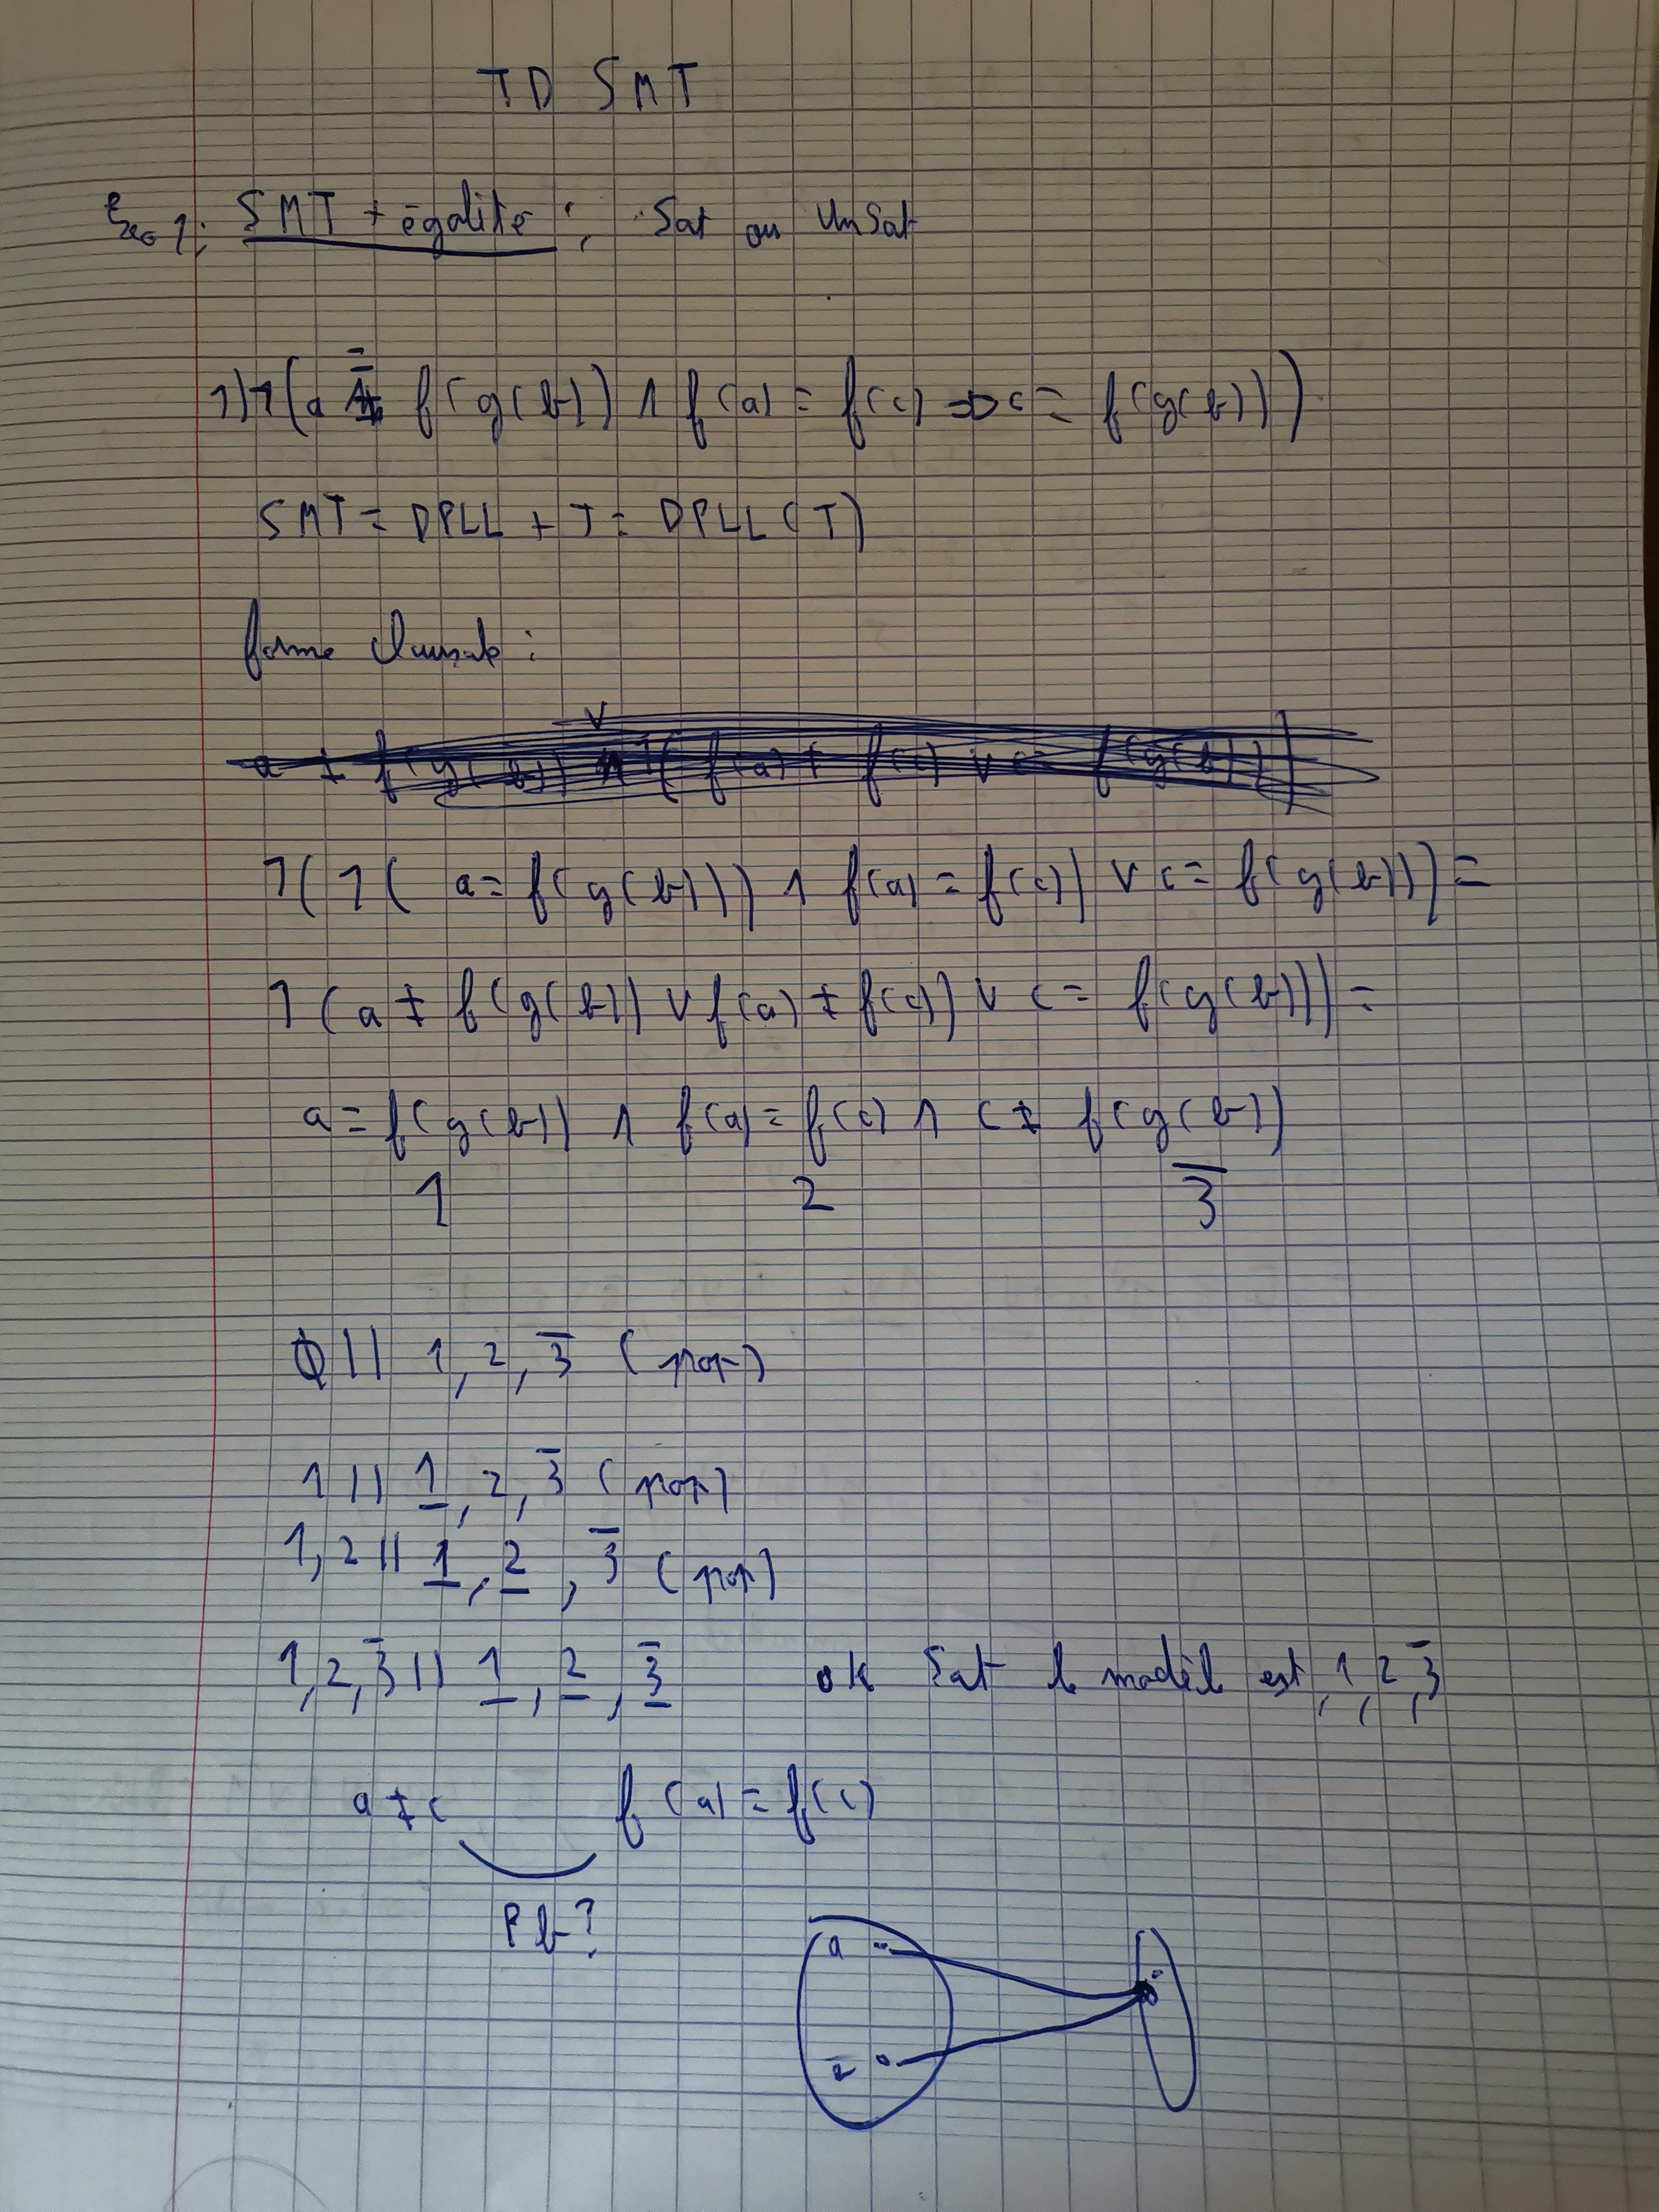 TD SMT
Exo 1: SMT + égalité : Sat ou UnSat
1) ¬(a = f(g(b)) ∧ f(a) = f(c) => c = f(g(b)))
SMT = DPLL + T = DPLL(T)
forme clausale :
¬(¬( a = f(g(b))) ∧ f(a) = f(c)) ∨ c = f(g(b))) =
¬(a ≠ f(g(b)) ∨ f(a) ≠ f(c)) ∨ c = f(g(b))) =
a = f(g(b)) ∧ f(a) = f(c) ∧ c ≠ f(g(b))
1 2 3̅
∅ || 1, 2, 3̅ (prop)
1 || 1, 2, 3̅ (prop)
1, 2 || 1, 2, 3̅ (prop)
1, 2, 3̅ || 1, 2, 3̅ ok Sat le modèle est 1, 2, 3̅
a ≠ c f(a) = f(c)
Pb?
a